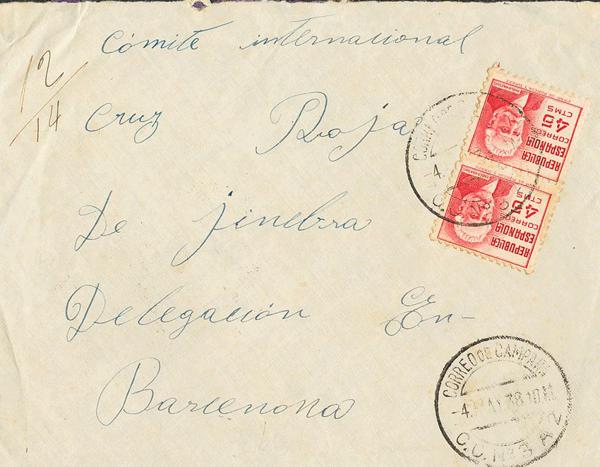 12/14
Cómite internacional
Cruz Roja
De jinebra
Delegación En-
Barcenona
REPUBLICA
ESPAÑOLA
CORREOS
45
CTMS
REPUBLICA
ESPAÑOLA
CORREOS
45
CTMS
CORREO DE CAMPAÑA
C.C. Nº 3 A 2